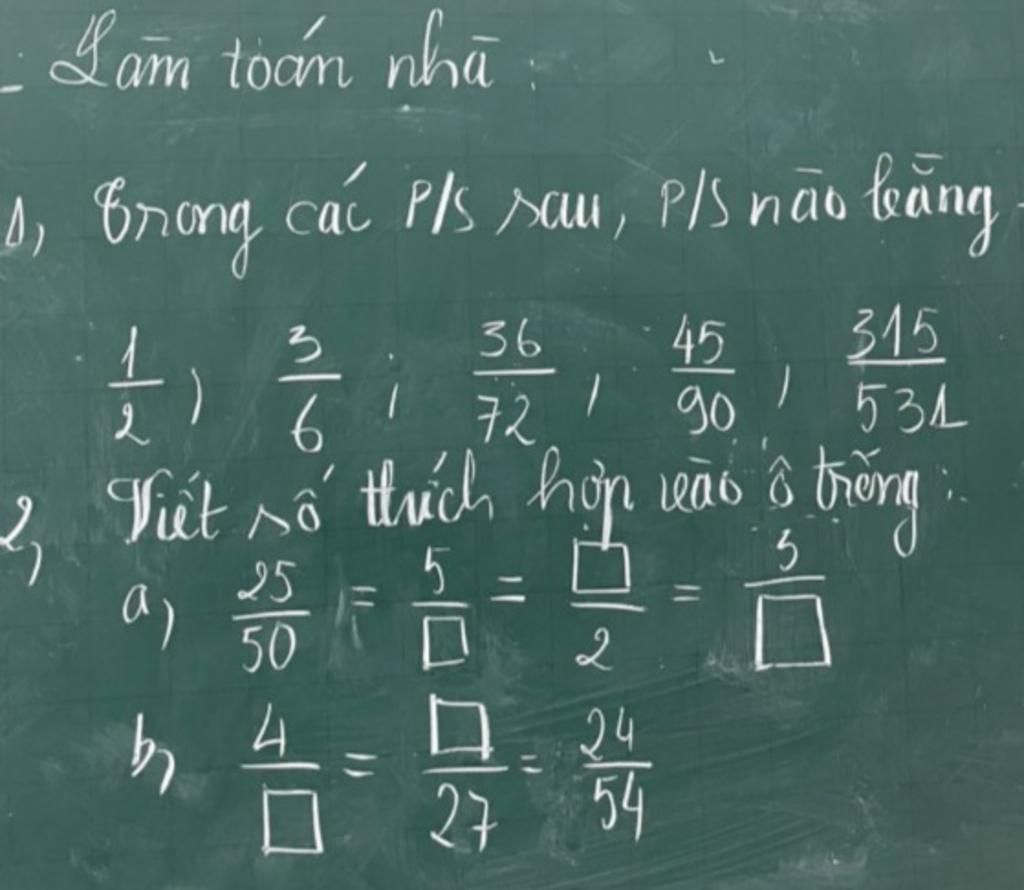 - Làm toán nhà :
1, Trong các P/S sau, P/S nào bằng
1/2, 3/6; 36/72, 45/90, 315/531
2, Viết số thích hợp vào ô trống:
a, 25/50 = 5/□ = □/2 = 3/□
b, 4/□ = □/27 = 24/54